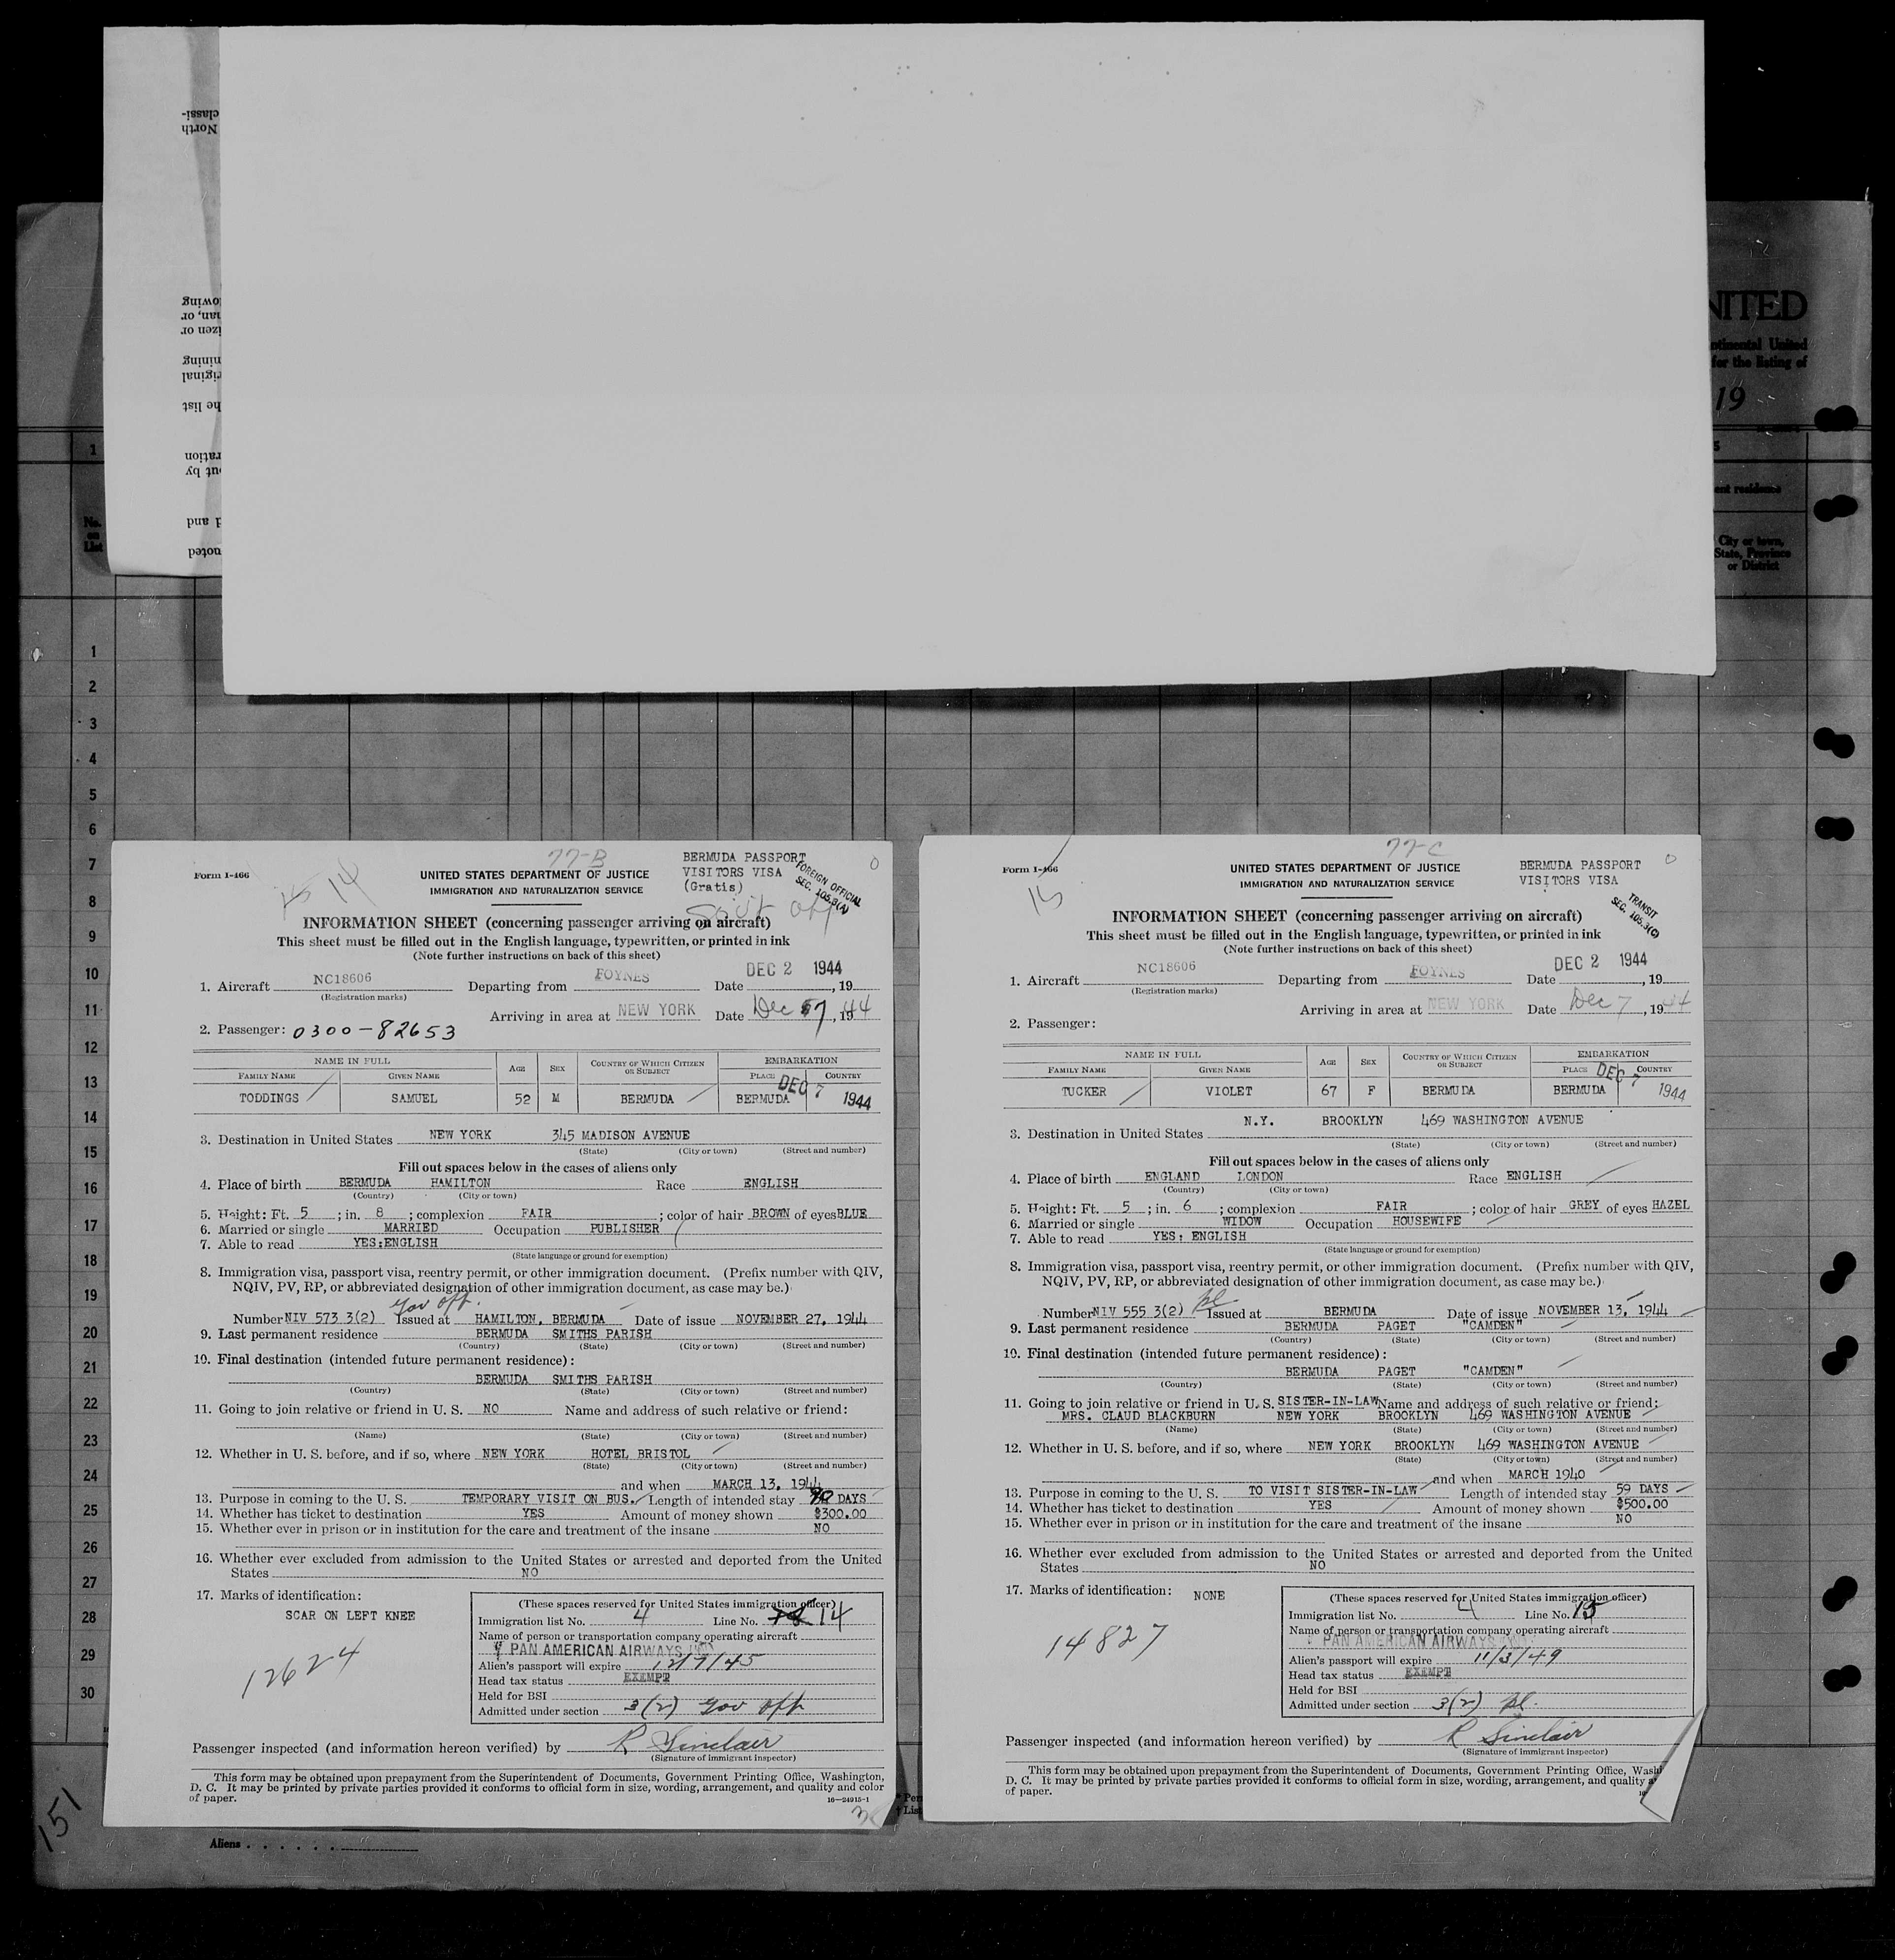 classi-
North
owing
nan, or
izen or
mining
riginal
he list
ration
out by
d and
noted
NITED
ntinental United
for the listing of
19
1
5
ent residence
No.
on
List
City or town,
State, Province
or District
1
2
3
4
5
6
7
8
9
10
11
12
13
14
15
16
17
18
19
20
21
22
23
24
25
26
27
28
29
30
151
Aliens
77-B
Form I-466
14
UNITED STATES DEPARTMENT OF JUSTICE
IMMIGRATION AND NATURALIZATION SERVICE
BERMUDA PASSPORT
VISITORS VISA
(Gratis)
FOREIGN OFFICIAL
SEC. 105.3(A)
0
INFORMATION SHEET (concerning passenger arriving on aircraft)
This sheet must be filled out in the English language, typewritten, or printed in ink
(Note further instructions on back of this sheet)
1. Aircraft NC18606 Departing from FOYNES Date DEC 2 1944, 19
(Registration marks)
Arriving in area at NEW YORK Date Dec 7, 1944
2. Passenger: 0300-82653
NAME IN FULL AGE SEX COUNTRY OF WHICH CITIZEN OR SUBJECT EMBARKATION
FAMILY NAME GIVEN NAME PLACE COUNTRY
DEC 7 1944
TODDINGS SAMUEL 52 M BERMUDA BERMUDA
3. Destination in United States NEW YORK 345 MADISON AVENUE
(State) (City or town) (Street and number)
Fill out spaces below in the cases of aliens only
4. Place of birth BERMUDA HAMILTON Race ENGLISH
(Country) (City or town)
5. Height: Ft. 5 ; in. 8 ; complexion FAIR ; color of hair BROWN of eyes BLUE
6. Married or single MARRIED Occupation PUBLISHER
7. Able to read YES:ENGLISH
(State language or ground for exemption)
8. Immigration visa, passport visa, reentry permit, or other immigration document. (Prefix number with QIV,
NQIV, PV, RP, or abbreviated designation of other immigration document, as case may be.)
Gov off.
Number NIV 573 3(2) Issued at HAMILTON, BERMUDA Date of issue NOVEMBER 27, 1944
9. Last permanent residence BERMUDA SMITHS PARISH
(Country) (State) (City or town) (Street and number)
10. Final destination (intended future permanent residence):
BERMUDA SMITHS PARISH
(Country) (State) (City or town) (Street and number)
11. Going to join relative or friend in U. S. NO Name and address of such relative or friend:
(Name) (State) (City or town) (Street and number)
12. Whether in U. S. before, and if so, where NEW YORK HOTEL BRISTOL
(State) (City or town) (Street and number)
and when MARCH 13, 1944
13. Purpose in coming to the U. S. TEMPORARY VISIT ON BUS. Length of intended stay DAYS
14. Whether has ticket to destination YES Amount of money shown $300.00
15. Whether ever in prison or in institution for the care and treatment of the insane NO
16. Whether ever excluded from admission to the United States or arrested and deported from the United
States NO
17. Marks of identification:
SCAR ON LEFT KNEE
12624
(These spaces reserved for United States immigration officer)
Immigration list No. 4 Line No. 14
Name of person or transportation company operating aircraft
PAN AMERICAN AIRWAYS INC
Alien's passport will expire 12/7/45
Head tax status EXEMPT
Held for BSI
Admitted under section 3(2) Gov off
Passenger inspected (and information hereon verified) by R Sinclair
(Signature of immigrant inspector)
This form may be obtained upon prepayment from the Superintendent of Documents, Government Printing Office, Washington,
D. C. It may be printed by private parties provided it conforms to official form in size, wording, arrangement, and quality and color
of paper.
16—24915-1
* Per
† List
77-C
Form I-466
15
UNITED STATES DEPARTMENT OF JUSTICE
IMMIGRATION AND NATURALIZATION SERVICE
BERMUDA PASSPORT
VISITORS VISA
TRANSIT
SEC. 105.3(C)
0
INFORMATION SHEET (concerning passenger arriving on aircraft)
This sheet must be filled out in the English language, typewritten, or printed in ink
(Note further instructions on back of this sheet)
1. Aircraft NC18606 Departing from FOYNES Date DEC 2 1944, 19
(Registration marks)
Arriving in area at NEW YORK Date Dec 7, 1944
2. Passenger:
NAME IN FULL AGE SEX COUNTRY OF WHICH CITIZEN OR SUBJECT EMBARKATION
FAMILY NAME GIVEN NAME PLACE COUNTRY
DEC 7 1944
TUCKER VIOLET 67 F BERMUDA BERMUDA
3. Destination in United States N.Y. BROOKLYN 469 WASHINGTON AVENUE
(State) (City or town) (Street and number)
Fill out spaces below in the cases of aliens only
4. Place of birth ENGLAND LONDON Race ENGLISH
(Country) (City or town)
5. Height: Ft. 5 ; in. 6 ; complexion FAIR ; color of hair GREY of eyes HAZEL
6. Married or single WIDOW Occupation HOUSEWIFE
7. Able to read YES: ENGLISH
(State language or ground for exemption)
8. Immigration visa, passport visa, reentry permit, or other immigration document. (Prefix number with QIV,
NQIV, PV, RP, or abbreviated designation of other immigration document, as case may be.)
pl
Number NIV 555 3(2) Issued at BERMUDA Date of issue NOVEMBER 13, 1944
9. Last permanent residence BERMUDA PAGET "CAMDEN"
(Country) (State) (City or town) (Street and number)
10. Final destination (intended future permanent residence):
BERMUDA PAGET "CAMDEN"
(Country) (State) (City or town) (Street and number)
11. Going to join relative or friend in U. S. SISTER-IN-LAW Name and address of such relative or friend:
MRS. CLAUD BLACKBURN NEW YORK BROOKLYN 469 WASHINGTON AVENUE
(Name) (State) (City or town) (Street and number)
12. Whether in U. S. before, and if so, where NEW YORK BROOKLYN 469 WASHINGTON AVENUE
(State) (City or town) (Street and number)
and when MARCH 1940
13. Purpose in coming to the U. S. TO VISIT SISTER-IN-LAW Length of intended stay 59 DAYS
14. Whether has ticket to destination YES Amount of money shown $500.00
15. Whether ever in prison or in institution for the care and treatment of the insane NO
16. Whether ever excluded from admission to the United States or arrested and deported from the United
States NO
17. Marks of identification: NONE
14827
(These spaces reserved for United States immigration officer)
Immigration list No. 4 Line No. 15
Name of person or transportation company operating aircraft
PAN AMERICAN AIRWAYS INC
Alien's passport will expire 11/3/49
Head tax status EXEMPT
Held for BSI
Admitted under section 3(2) pl.
Passenger inspected (and information hereon verified) by R Sinclair
(Signature of immigrant inspector)
This form may be obtained upon prepayment from the Superintendent of Documents, Government Printing Office, Washi
D. C. It may be printed by private parties provided it conforms to official form in size, wording, arrangement, and quality a
of paper.